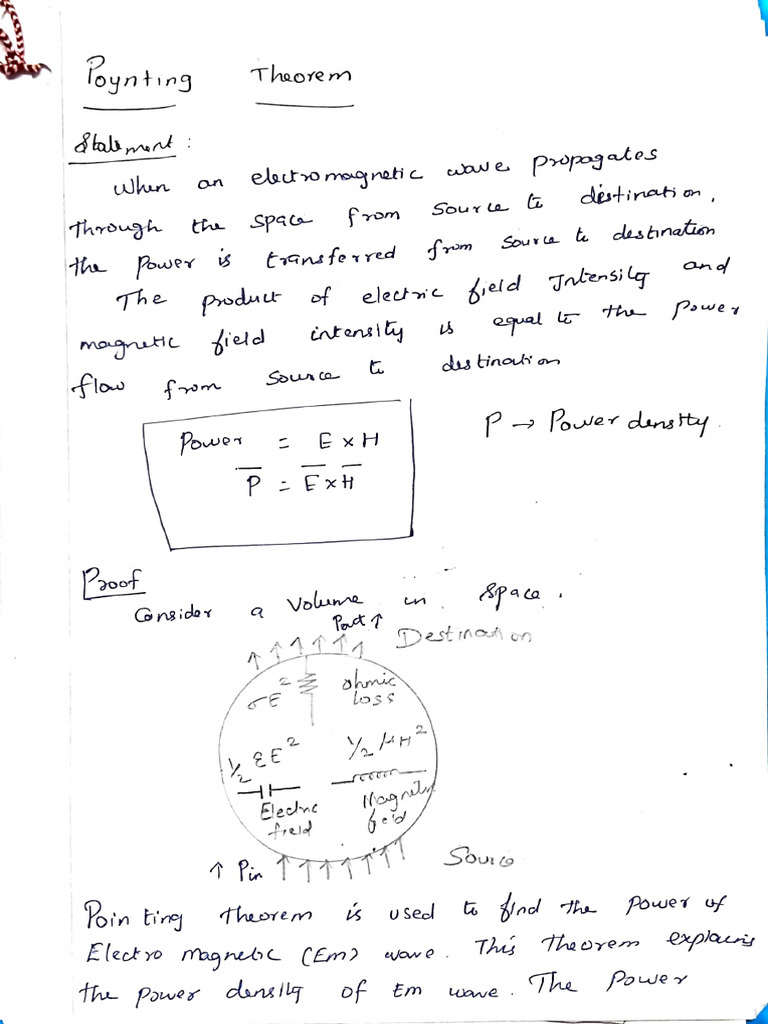 Poynting Theorem
Statement :
When an electromagnetic wave propagates
through the space from source to destination,
the power is transferred from source to destination
The product of electric field Intensity and
magnetic field intensity is equal to the power
flow from source to destination
Power = E × H
P → Power density.
P̅ = E̅ × H̅
Proof
Consider a Volume in space.
Pout ↑
Destination
σE² ohmic
loss
½ εE² ½ μH²
Electric
field
Magnetic
field
↑ Pin
Source
Poin ting theorem is used to find the power of
Electro magnetic (Em) wave. This theorem explains
the power density of Em wave. The Power